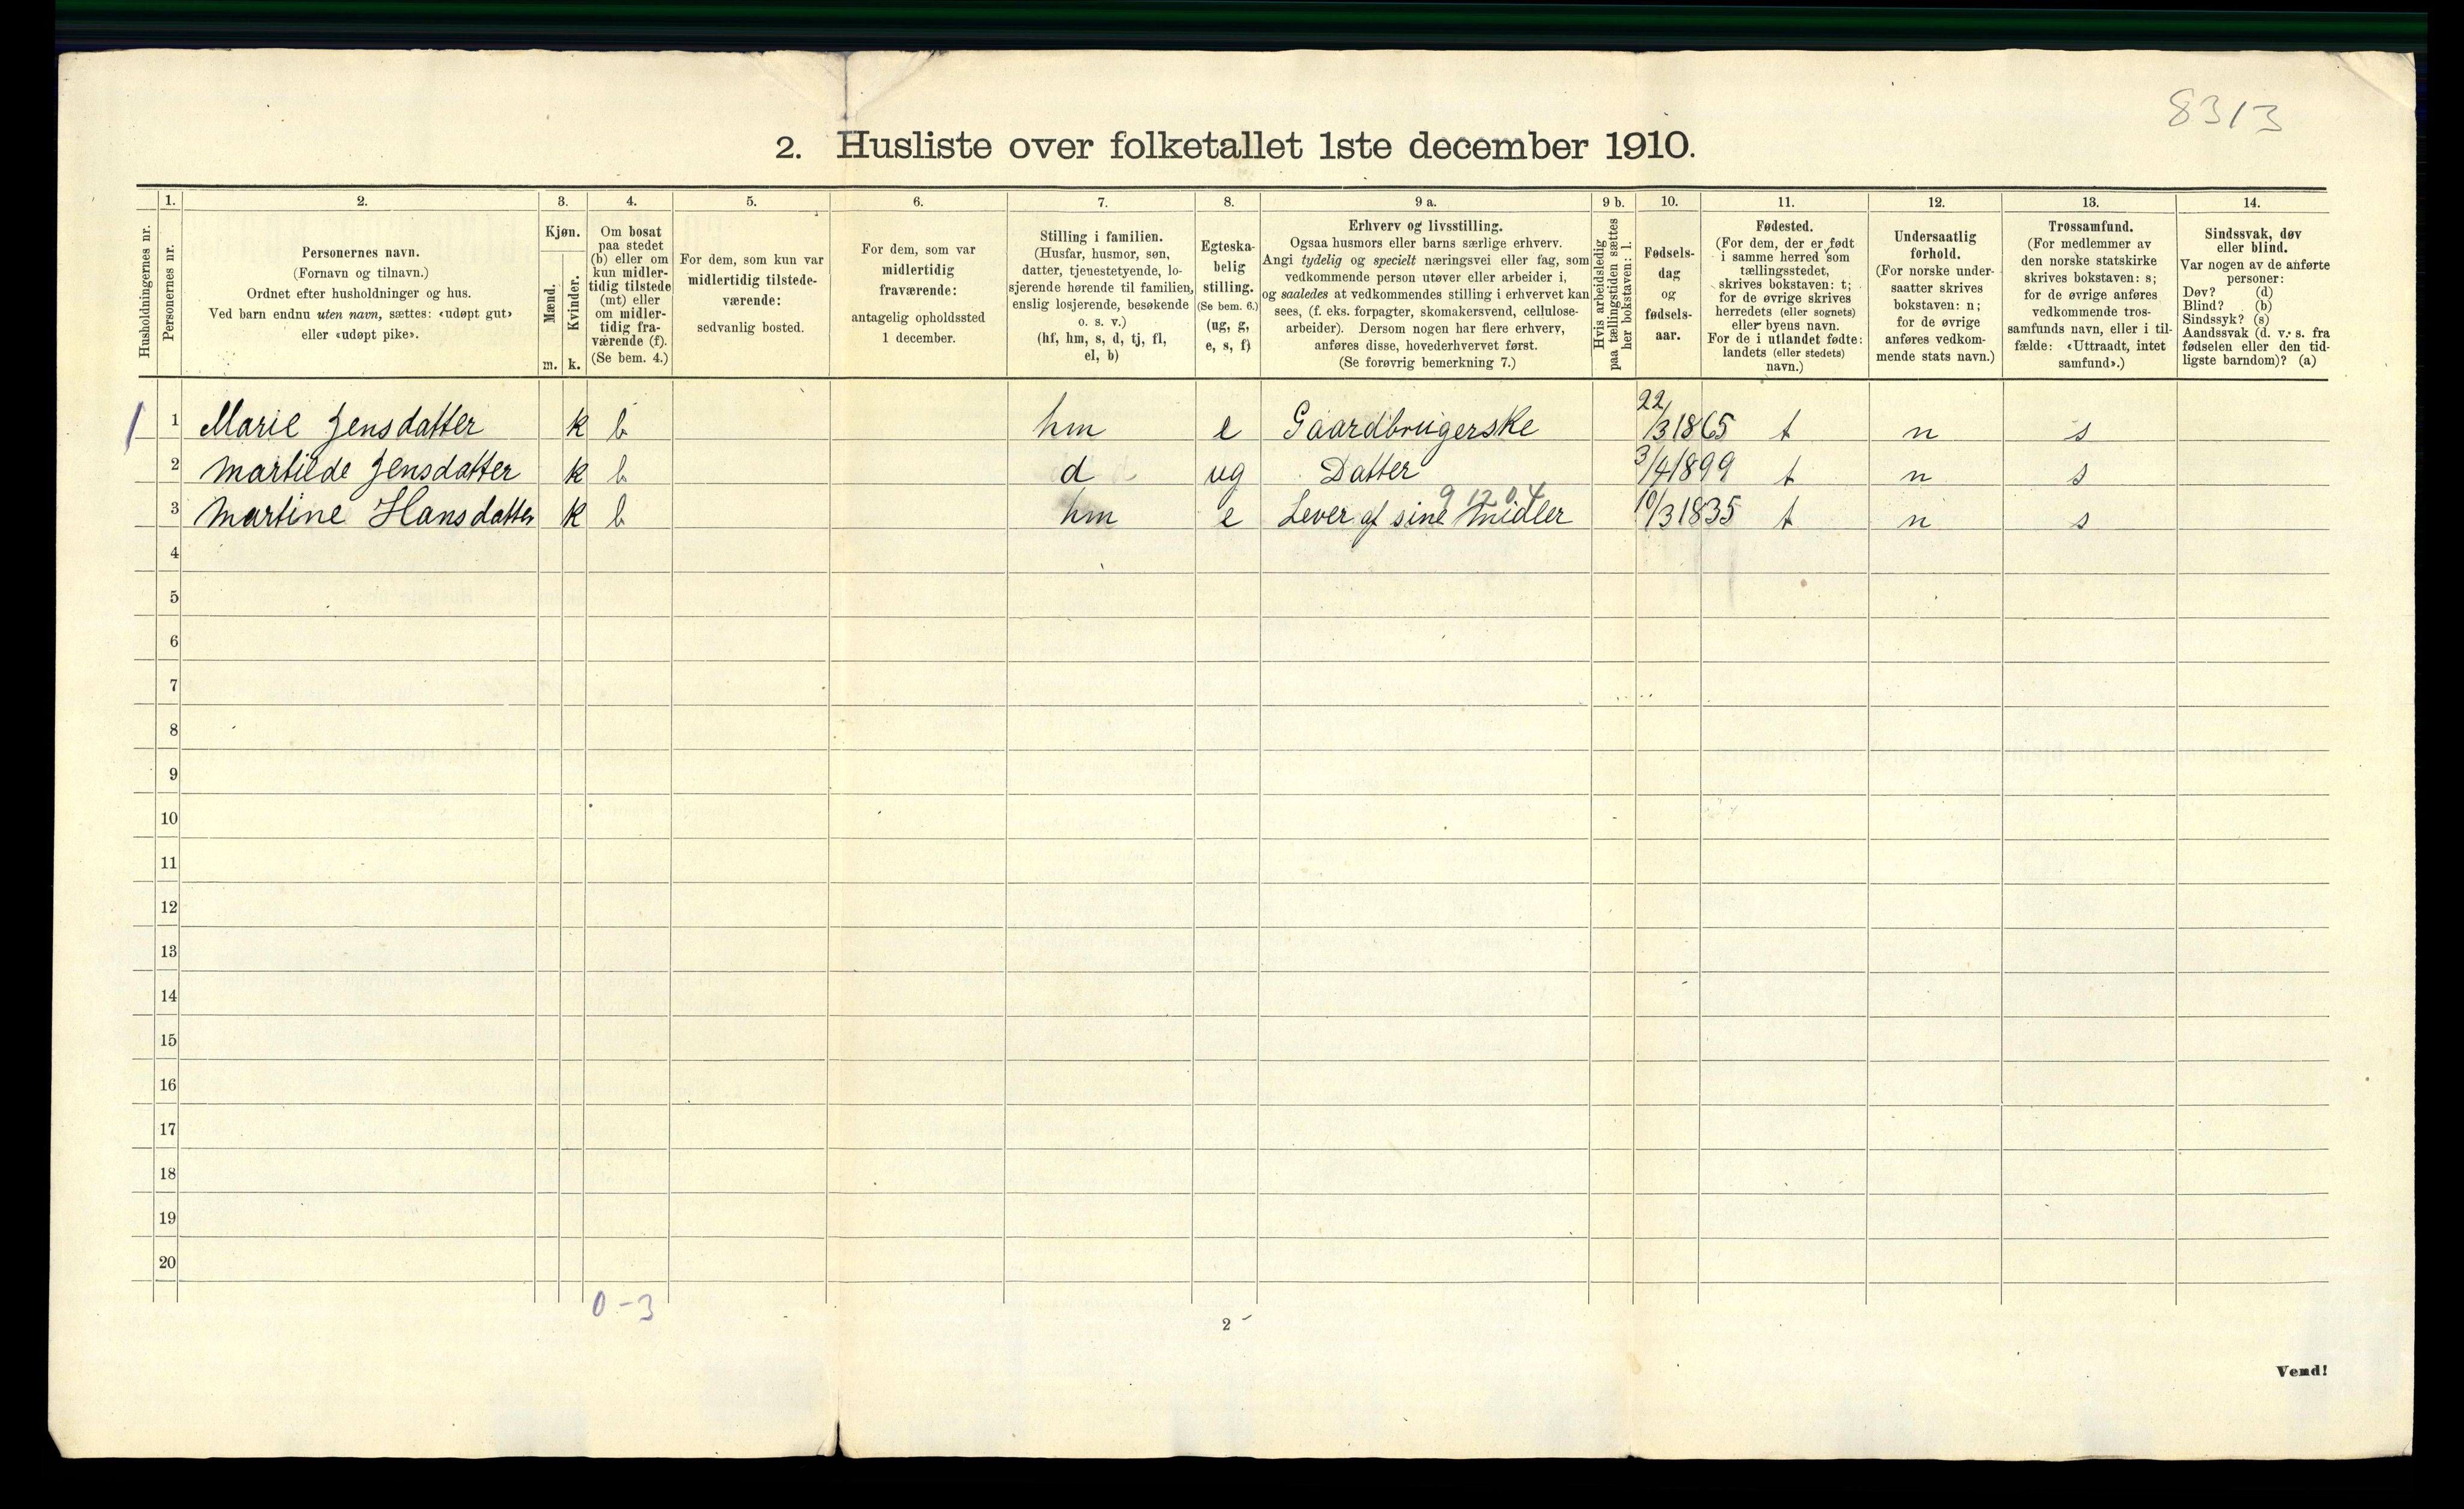 8313
2. Husliste over folketallet 1ste december 1910.
Husholdningernes nr.
1.
Personernes nr.
2.
Personernes navn.
(Fornavn og tilnavn.)
Ordnet efter husholdninger og hus.
Ved barn endnu uten navn, sættes: «udøpt gut»
eller «udøpt pike».
3.
Kjøn.
Mænd.
Kvinder.
m. k.
4.
Om bosat
paa stedet
(b) eller om
kun midler-
tidig tilstede
(mt) eller
om midler-
tidig fra-
værende (f).
(Se bem. 4.)
5.
For dem, som kun var
midlertidig tilstede-
værende:
sedvanlig bosted.
6.
For dem, som var
midlertidig
fraværende:
antagelig opholdssted
1 december.
7.
Stilling i familien.
(Husfar, husmor, søn,
datter, tjenestetyende, lo-
sjerende hørende til familien,
enslig losjerende, besøkende
o. s. v.)
(hf, hm, s, d, tj, fl,
el, b)
8.
Egteska-
belig
stilling.
(Se bem. 6.)
(ug, g,
e, s, f)
9 a.
Erhverv og livsstilling.
Ogsaa husmors eller barns særlige erhverv.
Angi tydelig og specielt næringsvei eller fag, som
vedkommende person utøver eller arbeider i,
og saaledes at vedkommendes stilling i erhvervet kan
sees, (f. eks. forpagter, skomakersvend, cellulose-
arbeider). Dersom nogen har flere erhverv,
anføres disse, hovederhvervet først.
(Se forøvrig bemerkning 7.)
9 b.
Hvis arbeidsledig
paa tællingstiden sættes
her bokstaven: l.
10.
Fødsels-
dag
og
fødsels-
aar.
11.
Fødested.
(For dem, der er født
i samme herred som
tællingsstedet,
skrives bokstaven: t;
for de øvrige skrives
herredets (eller sognets)
eller byens navn.
For de i utlandet fødte:
landets (eller stedets)
navn.)
12.
Undersaatlig
forhold.
(For norske under-
saatter skrives
bokstaven: n;
for de øvrige
anføres vedkom-
mende stats navn.)
13.
Trossamfund.
(For medlemmer av
den norske statskirke
skrives bokstaven: s;
for de øvrige anføres
vedkommende tros-
samfunds navn, eller i til-
fælde: «Uttraadt, intet
samfund».)
14.
Sindssvak, døv
eller blind.
Var nogen av de anførte
personer:
Døv? (d)
Blind? (b)
Sindssyk? (s)
Aandssvak (d. v. s. fra
fødselen eller den tid-
ligste barndom)? (a)
1 1 Marie Jensdatter k b hm e Gaardbrugerske 22/3 1865 t n s
2 Martilde Jensdatter k b d ug Datter 3/4 1899 t n s
9 12 0 4
3 Martine Hansdatter k b hm e Lever af sine midler 10/3 1835 t n s
4
5
6
7
8
9
10
11
12
13
14
15
16
17
18
19
20
0 - 3
2
Vend!